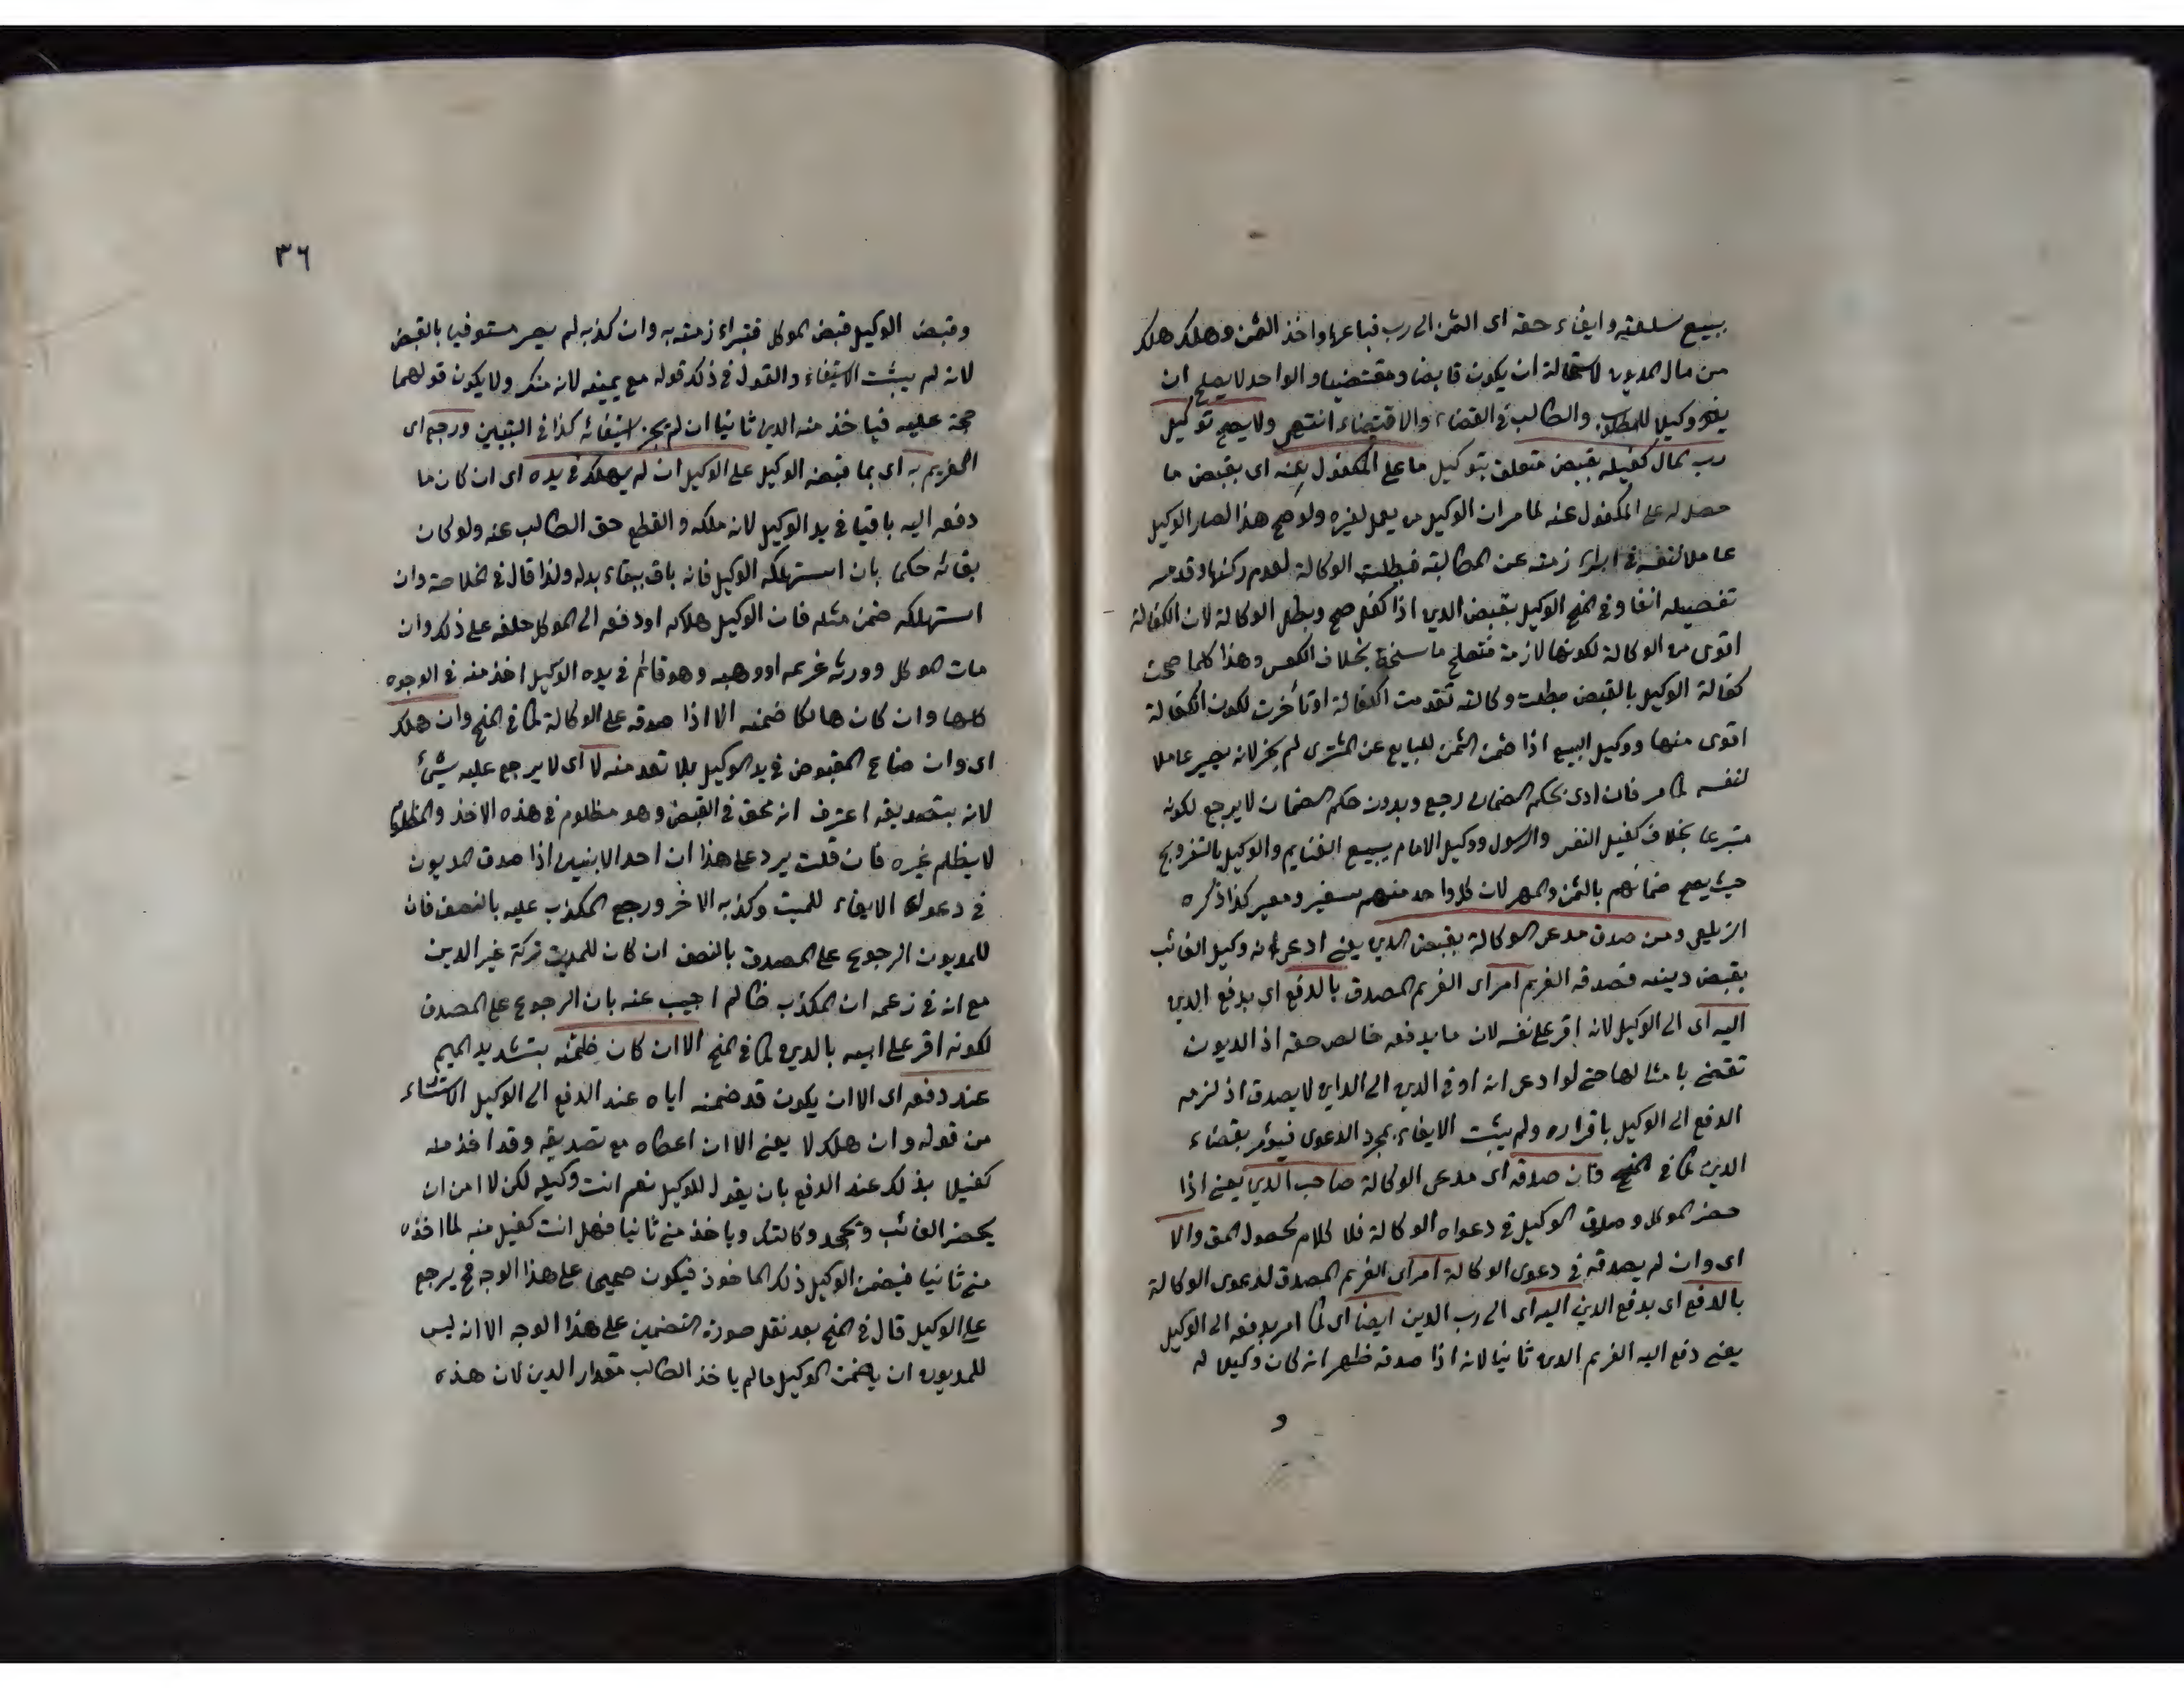 ببيع سلعته وايفاء حقه اى الثمن الى رب فباعها واخذ الثمن وهلك هلك
من مال المديون لاستحالة ان يكون قابضا ومقتضيا والواحد لا يصلح ان
يكون وكيلا للمطلوب والطالب فى القضاء والاقتضاء انتهى ولا يصح توكيل
رب المال كفيله بقبض متعلق بتوكيل ما على المكفول عنه اى بقبض ما
حصل له على المكفول عنه لما مر ان الوكيل من يعمل لغيره ولو صح هذا لصار الوكيل
عاملا لنفسه فى ابراء ذمته عن المطالبة فبطلت الوكالة لعدم ركنها وقد مر
تفصيله انفا وفى المنح الوكيل بقبض الدين اذا كفل صح وبطل الوكالة لان الكفالة
اقوى من الوكالة لكونها لازمة فتصلح ناسخة بخلاف العكس وهذا كلما صحت
كفالة الوكيل بالقبض بطلت وكالته تقدمت الكفالة او تأخرت لكون الكفالة
اقوى منها ووكيل البيع اذا ضمن الثمن للبايع عن المشترى لم يجز لانه يصير عاملا
لنفسه كما مر فان ادى بحكم الضمان رجع وبدون حكم الضمان لا يرجع لكونه
متبرعا بخلاف كفيل النفس والرسول ووكيل الامام ببيع الغنايم والوكيل بالتزويج
حيث يصح ضمانهم بالثمن والمهر لان كل واحد منهم سفير ومعبر كذا ذكره
الزيلعى ومن صدق مدعى الوكالة بقبض الدين يعنى ادعى انه وكيل الغائب
بقبض دينه فصدقه الغريم امر اى الغريم المصدق بالدفع اى بدفع الدين
اليه اى الى الوكيل لانه اقر على نفسه لان ما يدفعه خالص حقه اذ الديون
تقضى بامثالها حتى لو ادعى انه اوفى الدين الى الداين لا يصدق اذ لزمه
الدفع الى الوكيل باقراره ولم يثبت الايفاء بمجرد الدعوى فيؤمر بقضاء
الدين كما فى المنح فان صدقه اى مدعى الوكالة صاحب الدين يعنى اذا
حضر الموكل وصدق الوكيل فى دعواه الوكالة فلا كلام لحصول المق والا
اى وان لم يصدقه فى دعوى الوكالة امر اى الغريم المصدق لدعوى الوكالة
بالدفع اى بدفع الدين اليه اى الى رب الدين ايضا اى كما امر بدفعه الى الوكيل
يعنى دفع اليه الغريم الدين ثانيا لانه اذا صدقه ظهر انه كان وكيلا له
و
٣٦
وقبض الوكيل قبض الموكل فتبراء ذمته به وان كذبه لم يصر مستوفيا بالقبض
لانه لم يثبت الاستيفاء والقول فى ذلك قوله مع يمينه لانه منكر ولا يكون قولهما
حجة عليه فياخذ منه الدين ثانيا ان لم يجز استيفائه كذا فى التبيين ورجع اى
الغريم به اى بما قبضه الوكيل على الوكيل ان لم يهلك فى يده اى ان كان ما
دفعه اليه باقيا فى يد الوكيل لانه ملكه والقطع حق الطالب عنه ولو كان
بقائه حكما بان استهلكه الوكيل فانه باق ببقاء بدله ولذا قال فى الخلاصة وان
استهلكه ضمن مثله فان الوكيل هلاكه او دفعه الى الموكل حلفه على ذلك وان
مات الموكل وورثه غريمه او وهبه وهو قائم فى يده الوكيل اخذ منه فى الوجوه
كلها وان كان هالكا ضمنه الا اذا صدقه على الوكالة كما فى المنح وان هلك
اى وان ضاع المقبوض فى يد الوكيل بلا تعد منه لا اى لا يرجع عليه بشئ
لانه بتصديقه اعترف انه محق فى القبض وهو مظلوم فى هذه الاخذ والمظلوم
لا يظلم غيره فان قلت يرد على هذا ان احد الابنين اذا صدق المديون
فى دعواه الايفاء للميت وكذبه الاخر ورجع المكذب عليه بالنصف فان
للمديون الرجوع على المصدق بالنصف ان كان للميت تركة غير الدين
مع انه فى زعمه ان المكذب ظالم اجيب عنه بان الرجوع على المصدق
لكونه اقر على ابيه بالدين كما فى المنح الا ان كان ضمنه بتشديد الميم
عند دفعه اى الا ان يكون قد ضمنه اياه عند الدفع الى الوكيل استثناء
من قوله وان هلك لا يعنى الا ان اعطاه مع تصديقه وقد اخذ منه
كفيلا بذلك عند الدفع بان يقول للوكيل نعم انت وكيله لكن لا امن ان
يحضر الغائب ويجحد وكالتك وياخذ منى ثانيا فهل انت كفيل منه لما اخذه
منى ثانيا فيضمن الوكيل ذلك الماخوذ فيكون صحيحا على هذا الوجه فح يرجع
على الوكيل قال فى المنح بعد نقل صورة التضمين على هذا الوجه الا انه ليس
للمديون ان يضمن الوكيل ما لم ياخذ الطالب مقدار الدين لان هذه